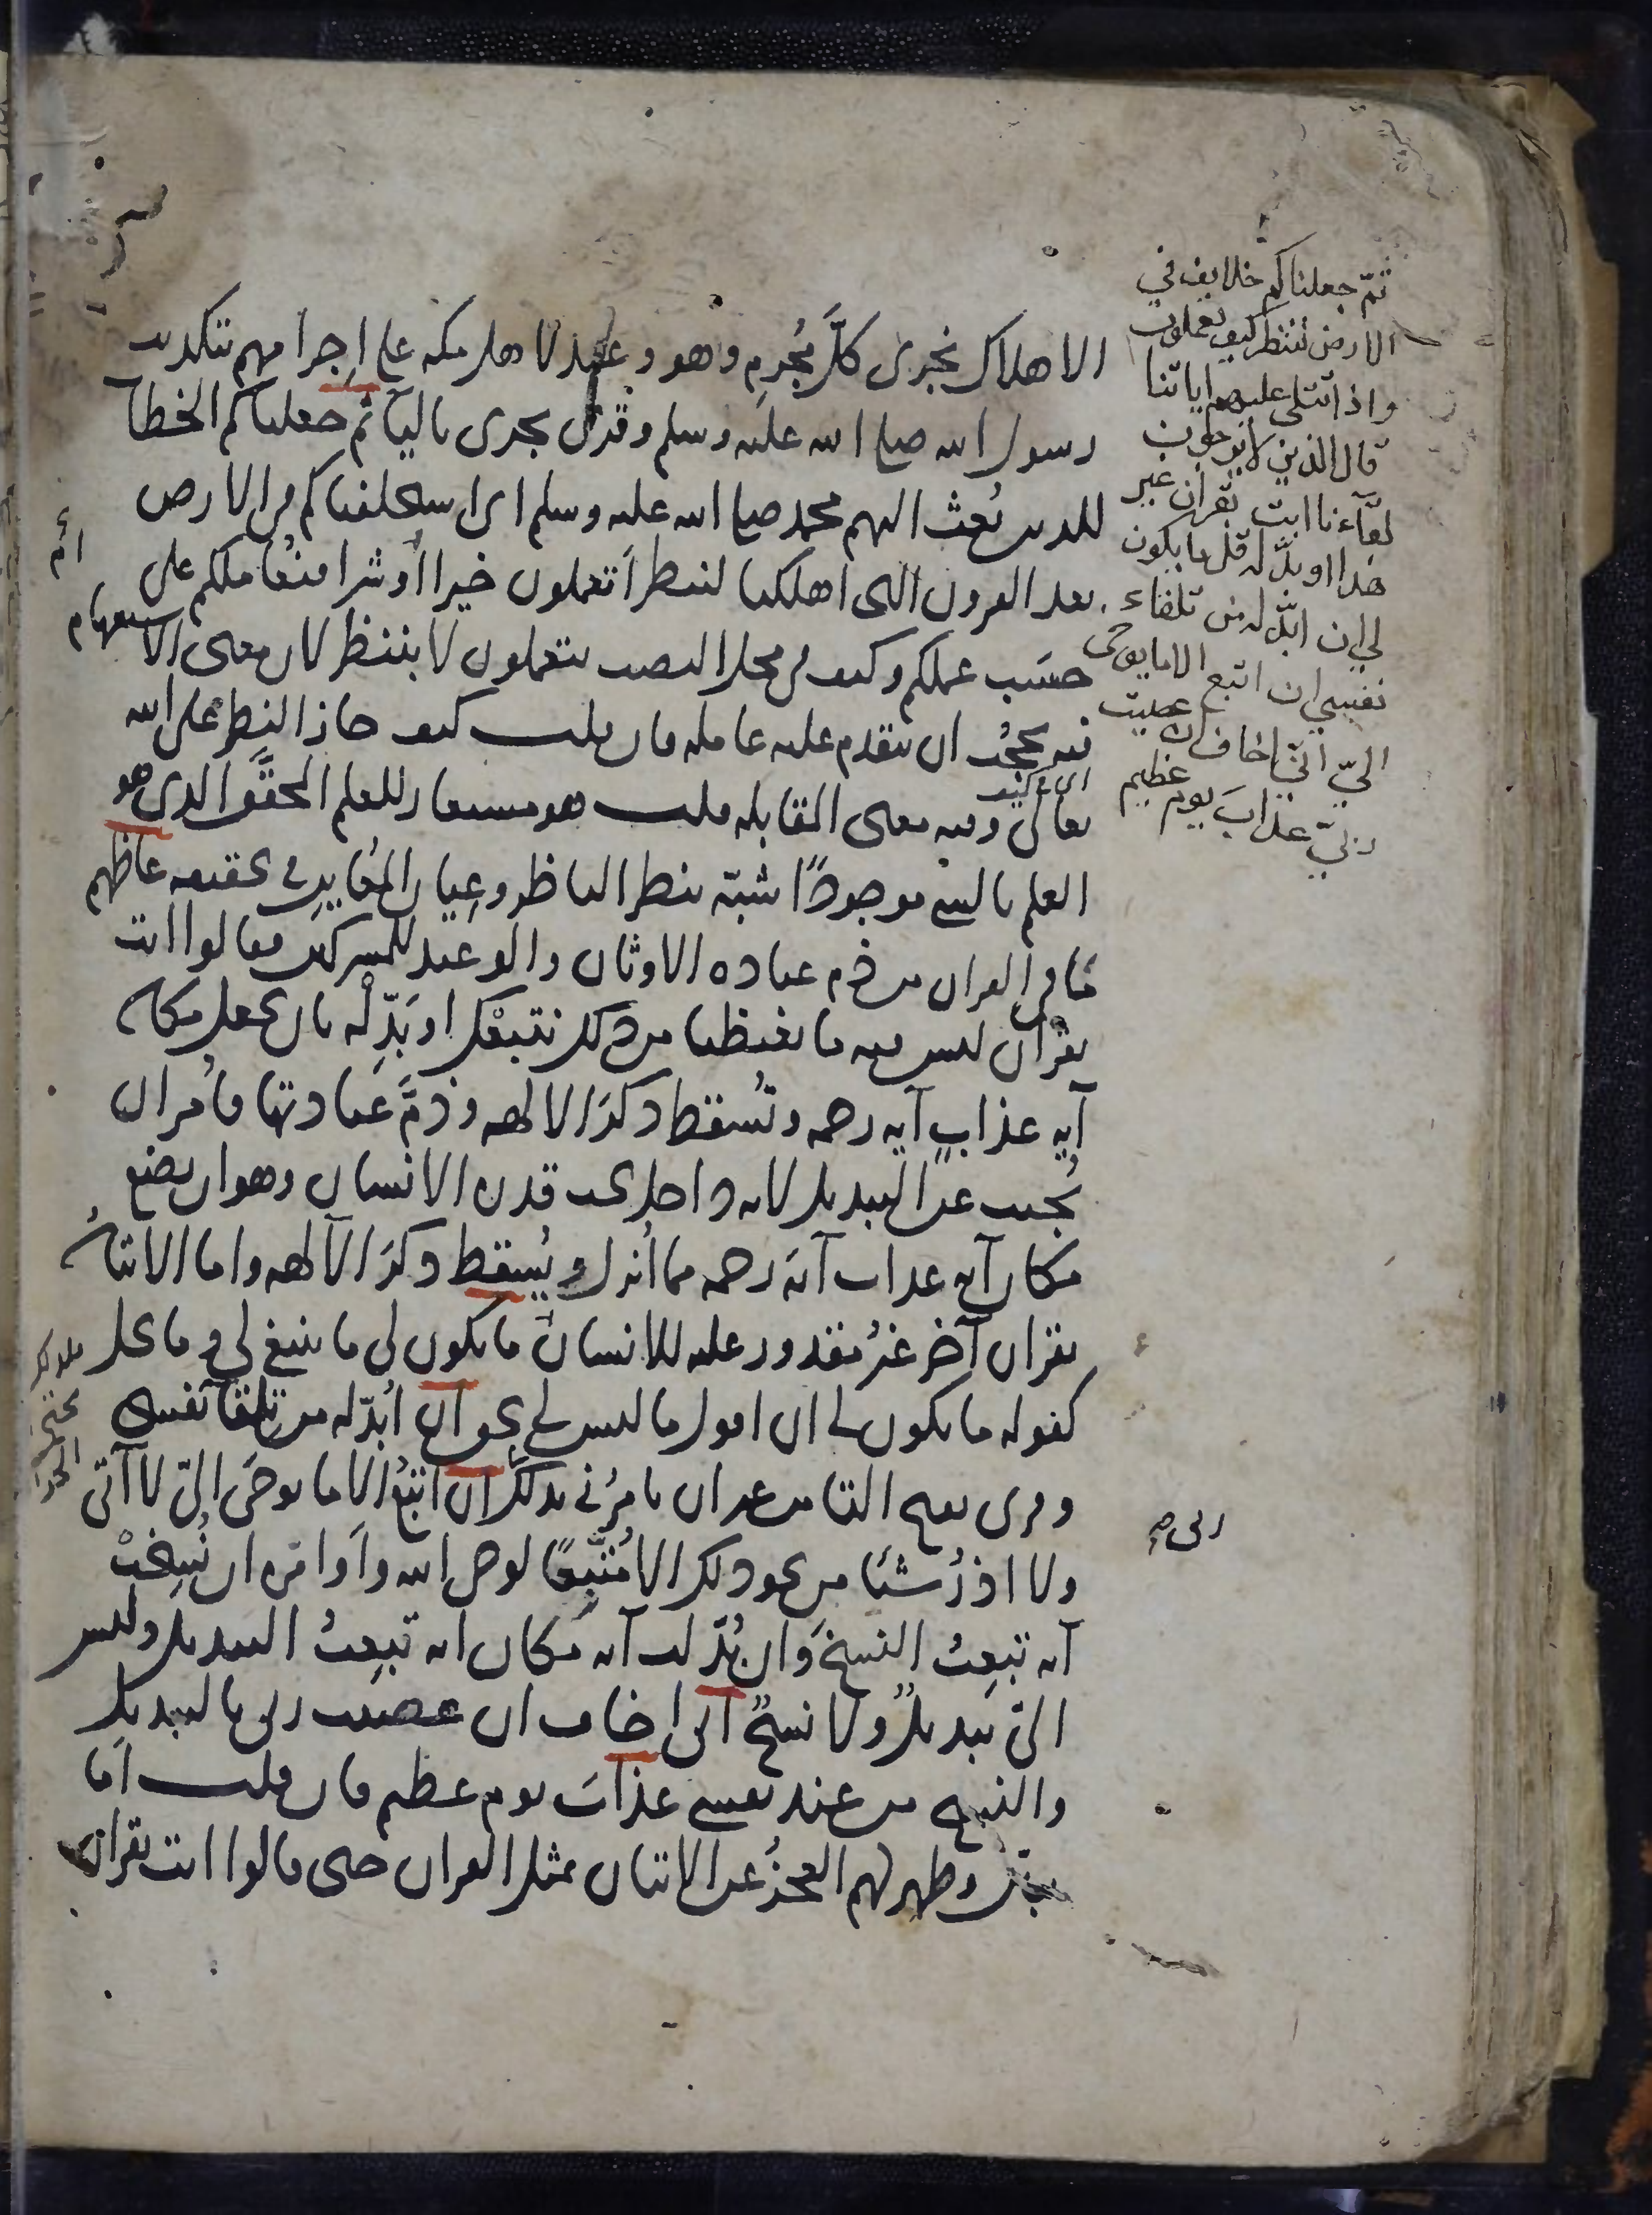 ثمّ جعلناكم خلايف في
الارض لننظر كيف تعملون
واذا تتلى عليهم اياتنا
قال الذين لا يرجون
لقآءنا ائت بقران غير
هذا او بدّله قل ما يكون
لي ان ابدّله من تلقاء
نفسي ان اتبع الا ما يوحى
اليّ انّي اخاف ان عصيت
ربّي عذابَ يوم عظيم
الاهلاك نجزى كلَّ مُجرِمٍ وهو وعيد لاهل مكه على اِجرامهم بتكذيب
رسول الله صلى الله عليه وسلم وقُرئ يجزى باليآ ثم جعلناكم الخطاب
للذين بُعث اليهم محمد صلى الله عليه وسلم اى استخلفناكم في الارض
بعد القرون التى اهلكنا لننظر أتعملون خيرا أو شرا فنعاملكم على
حسَب عملكم وكيف في محل النصب بتعملون لا بننظر لان معنى الاستفهام
فيه يحجُب ان يتقدم عليه عامله فان قلت كيف جاز النظر على الله
تعالى وفيه معنى المقابله قلت هو مستعار للعلم المحقَّق الذى هو
العلم بالشى موجودًا شُبّه بنظر الناظر وعِيان المُعاين في تحققه غاظهم
ما في القران من ذم عباده الاوثان والوعيد للمشركين فقالوا ائت
بقرآن ليس فيه ما يغيظنا من ذلك نتبعْك او بَدِّلْه بان تجعل مكان
آيه عذابٍ آيه رحمه وتُسقط ذكرَ الالهه وذمَّ عبادتها فاُمر ان
يُجيب عن التبديل لانه داخل تحت قدره الانسان وهو ان يضع
مكان آيه عذاب آيه رحمه مما اُنزل ويُسقط ذكرَ الآلهه واما الاتيانُ
بقران آخر غيرُ مقدور عليه للانسان ما يكون لى ما ينبغي لي وما يحل
كقوله ما يكون لى ان اقول ما ليس لي بحق ان اُبدّله من تلقآ نفسى
وقرى بفتح التا من غير ان يامرُني بذلك ربى ان اتبعُ الا ما يوحَى اليّ لا آتى
ولا اذرُ شيئا من نحو ذلك الا مُتّبِعًا لوحى الله وأوامره ان نُسِخَتْ
آيه تبعتُ النسخَ وان بُدّلت آيه مكان ايه تبعتُ التبديل وليس
الىّ تبديلٌ ولا نسخٌ انى اخاف ان عصيت ربى بالتبديل
والنسخ من عند نفسى عذابَ يوم عظيم فان قلت أما
وظهر لهم العجزُ عن الاتيان بمثل القران حتى قالوا ائت بقران